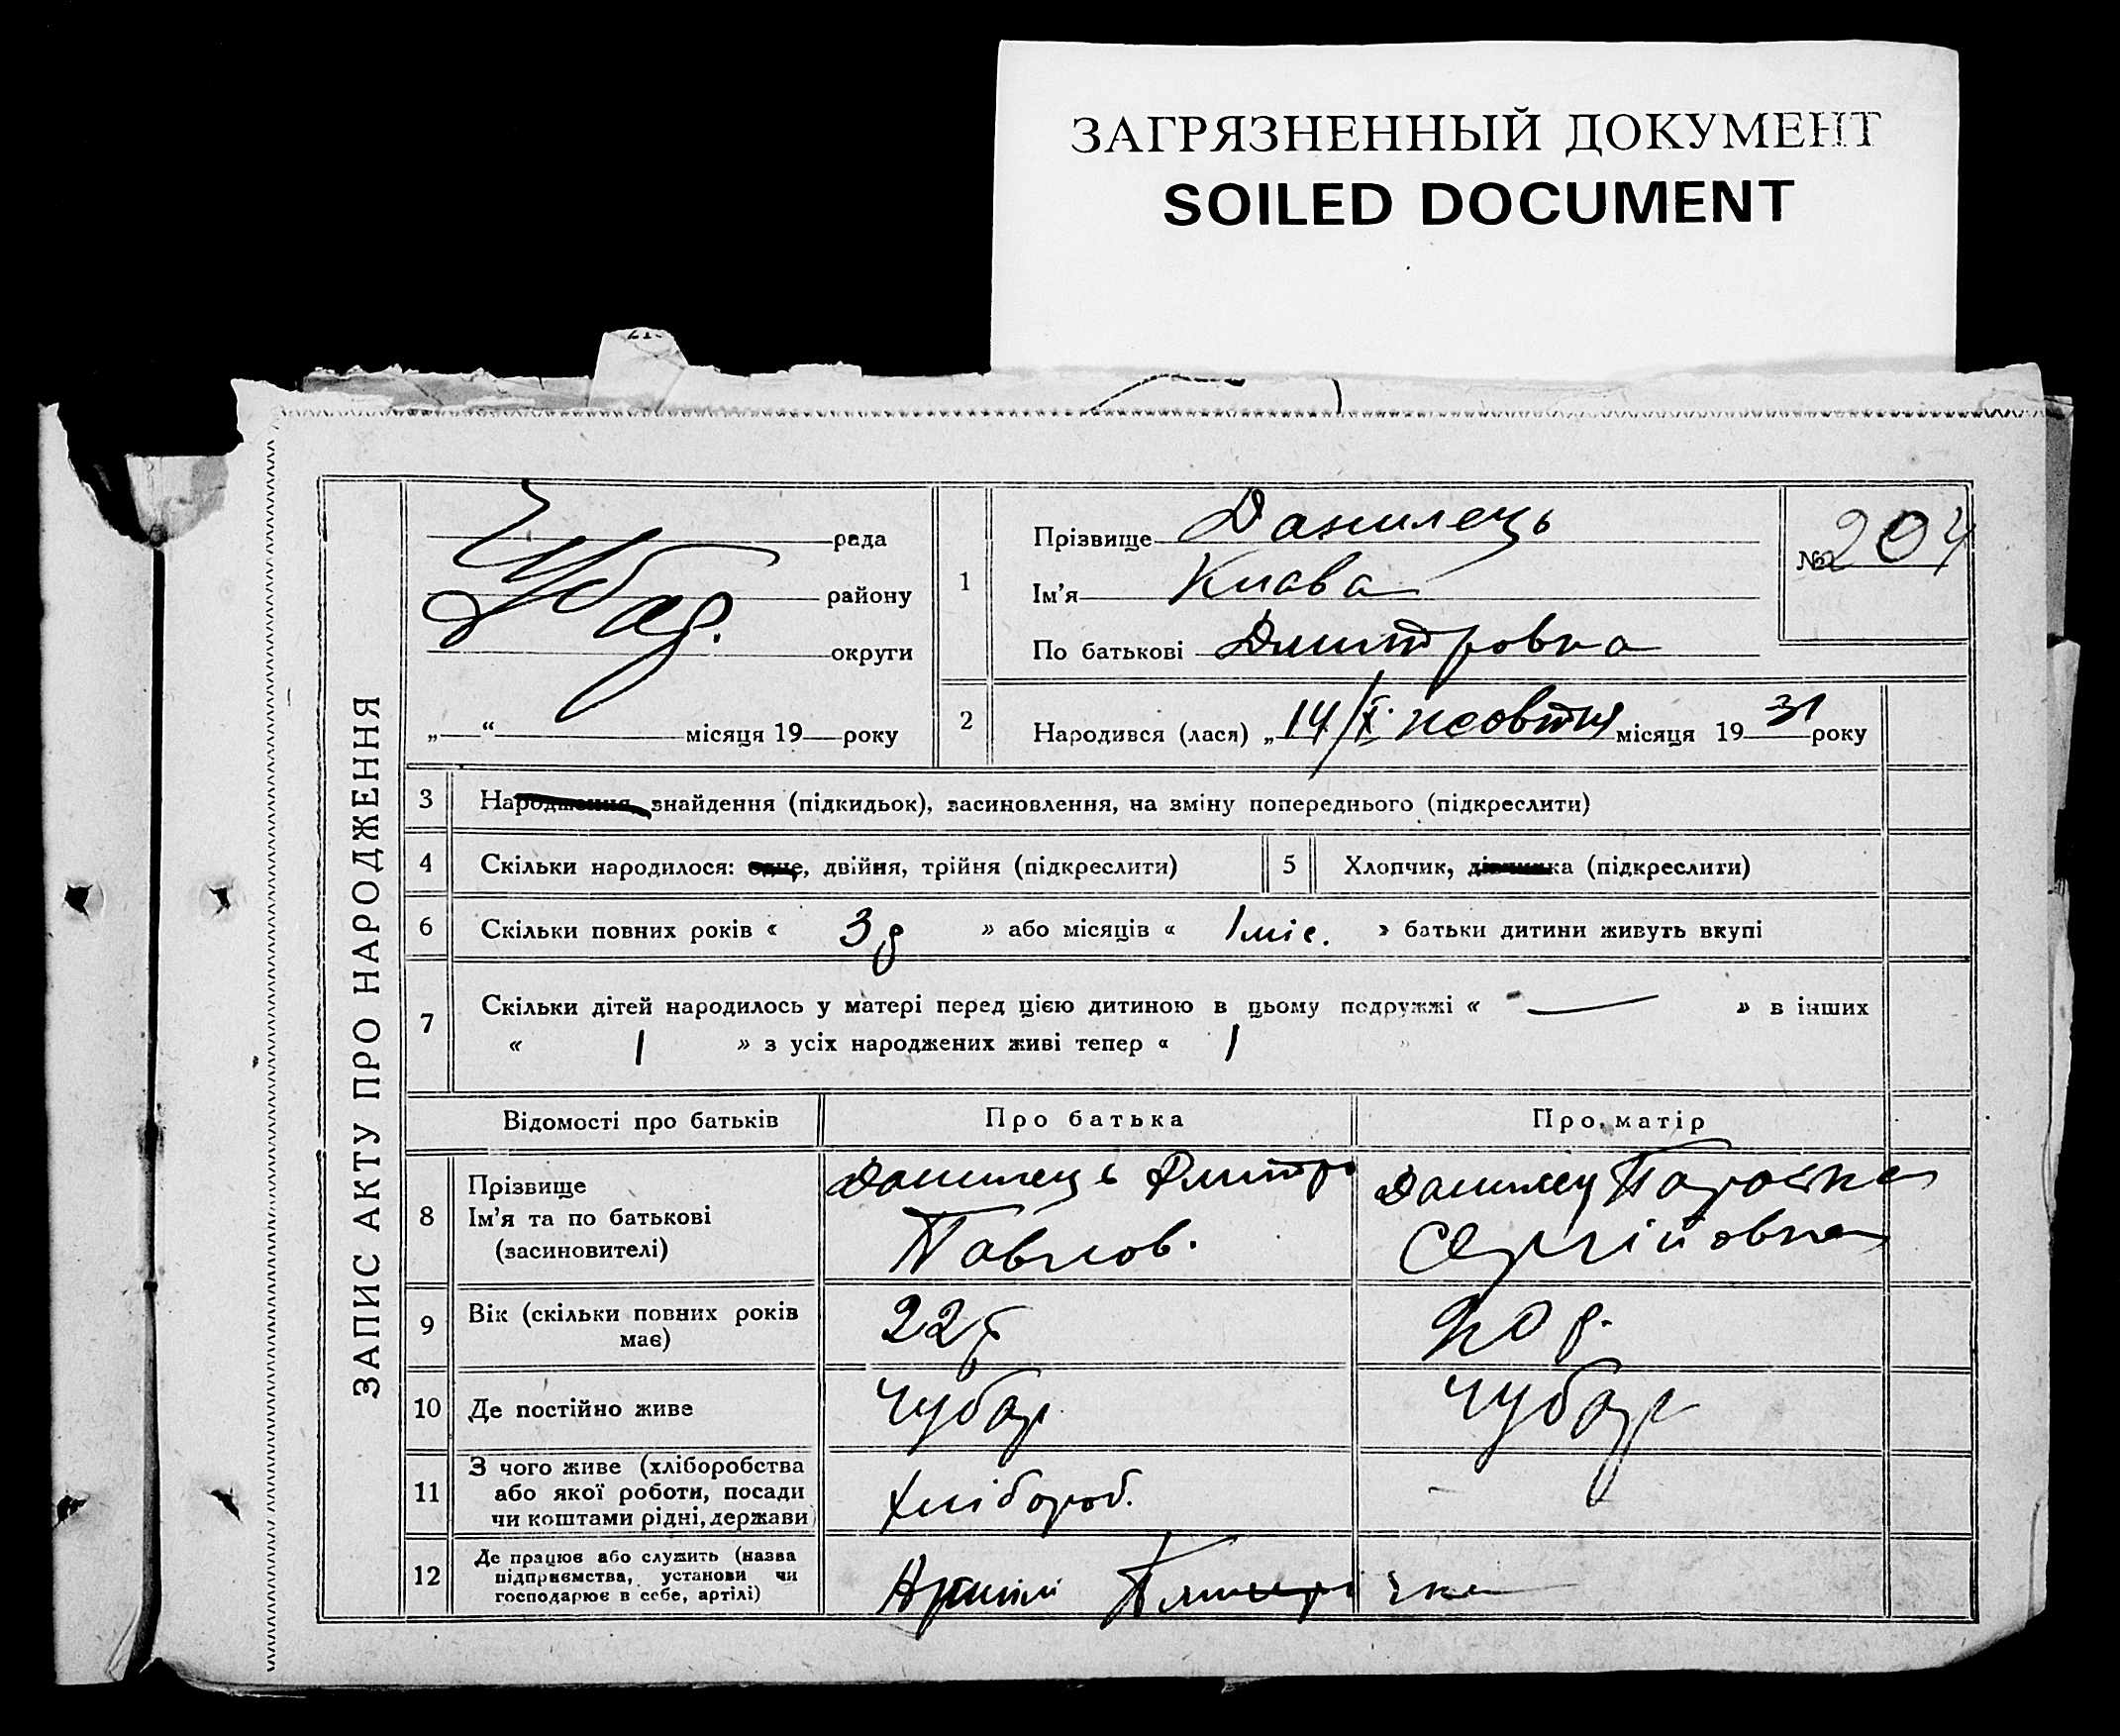 ЗАГРЯЗНЕННЫЙ ДОКУМЕНТ
SOILED DOCUMENT
ЗАПИС АКТУ ПРО НАРОДЖЕННЯ
Чубар.
рада
району
округи
„ “ місяця 19 року
1
Прізвище Данилець
Ім'я Клава
По батькові Дмитровна
№ 204
2
Народився (лася) „ 14/X. жовтня місяця 19 31 року
3 Народження, знайдення (підкидьок), засиновлення, на зміну попереднього (підкреслити)
4 Скільки народилося: одне, двійня, трійня (підкреслити)
5 Хлопчик, дівчинка (підкреслити)
6 Скільки повних років « 3 р » або місяців « 1 міс. » батьки дитини живуть вкупі
7 Скільки дітей народилось у матері перед цією дитиною в цьому подружжі « — » в інших
« 1 » з усіх народжених живі тепер « 1 »
Відомості про батьків
Про батька
Про матір
8
Прізвище
Ім'я та по батькові
(засиновителі)
Данилець Дмитро
Павлов.
Данилец Параска
Сергійовна
9
Вік (скільки повних років
має)
22 р
20 р.
10 Де постійно живе
Чубар
Чубар
11
З чого живе (хліборобства
або якої роботи, посади
чи коштами рідні, держави)
Хлібороб.
-
12
Де працює або служить (назва
підприємства, установи чи
господарює в себе, артілі)
Артілі